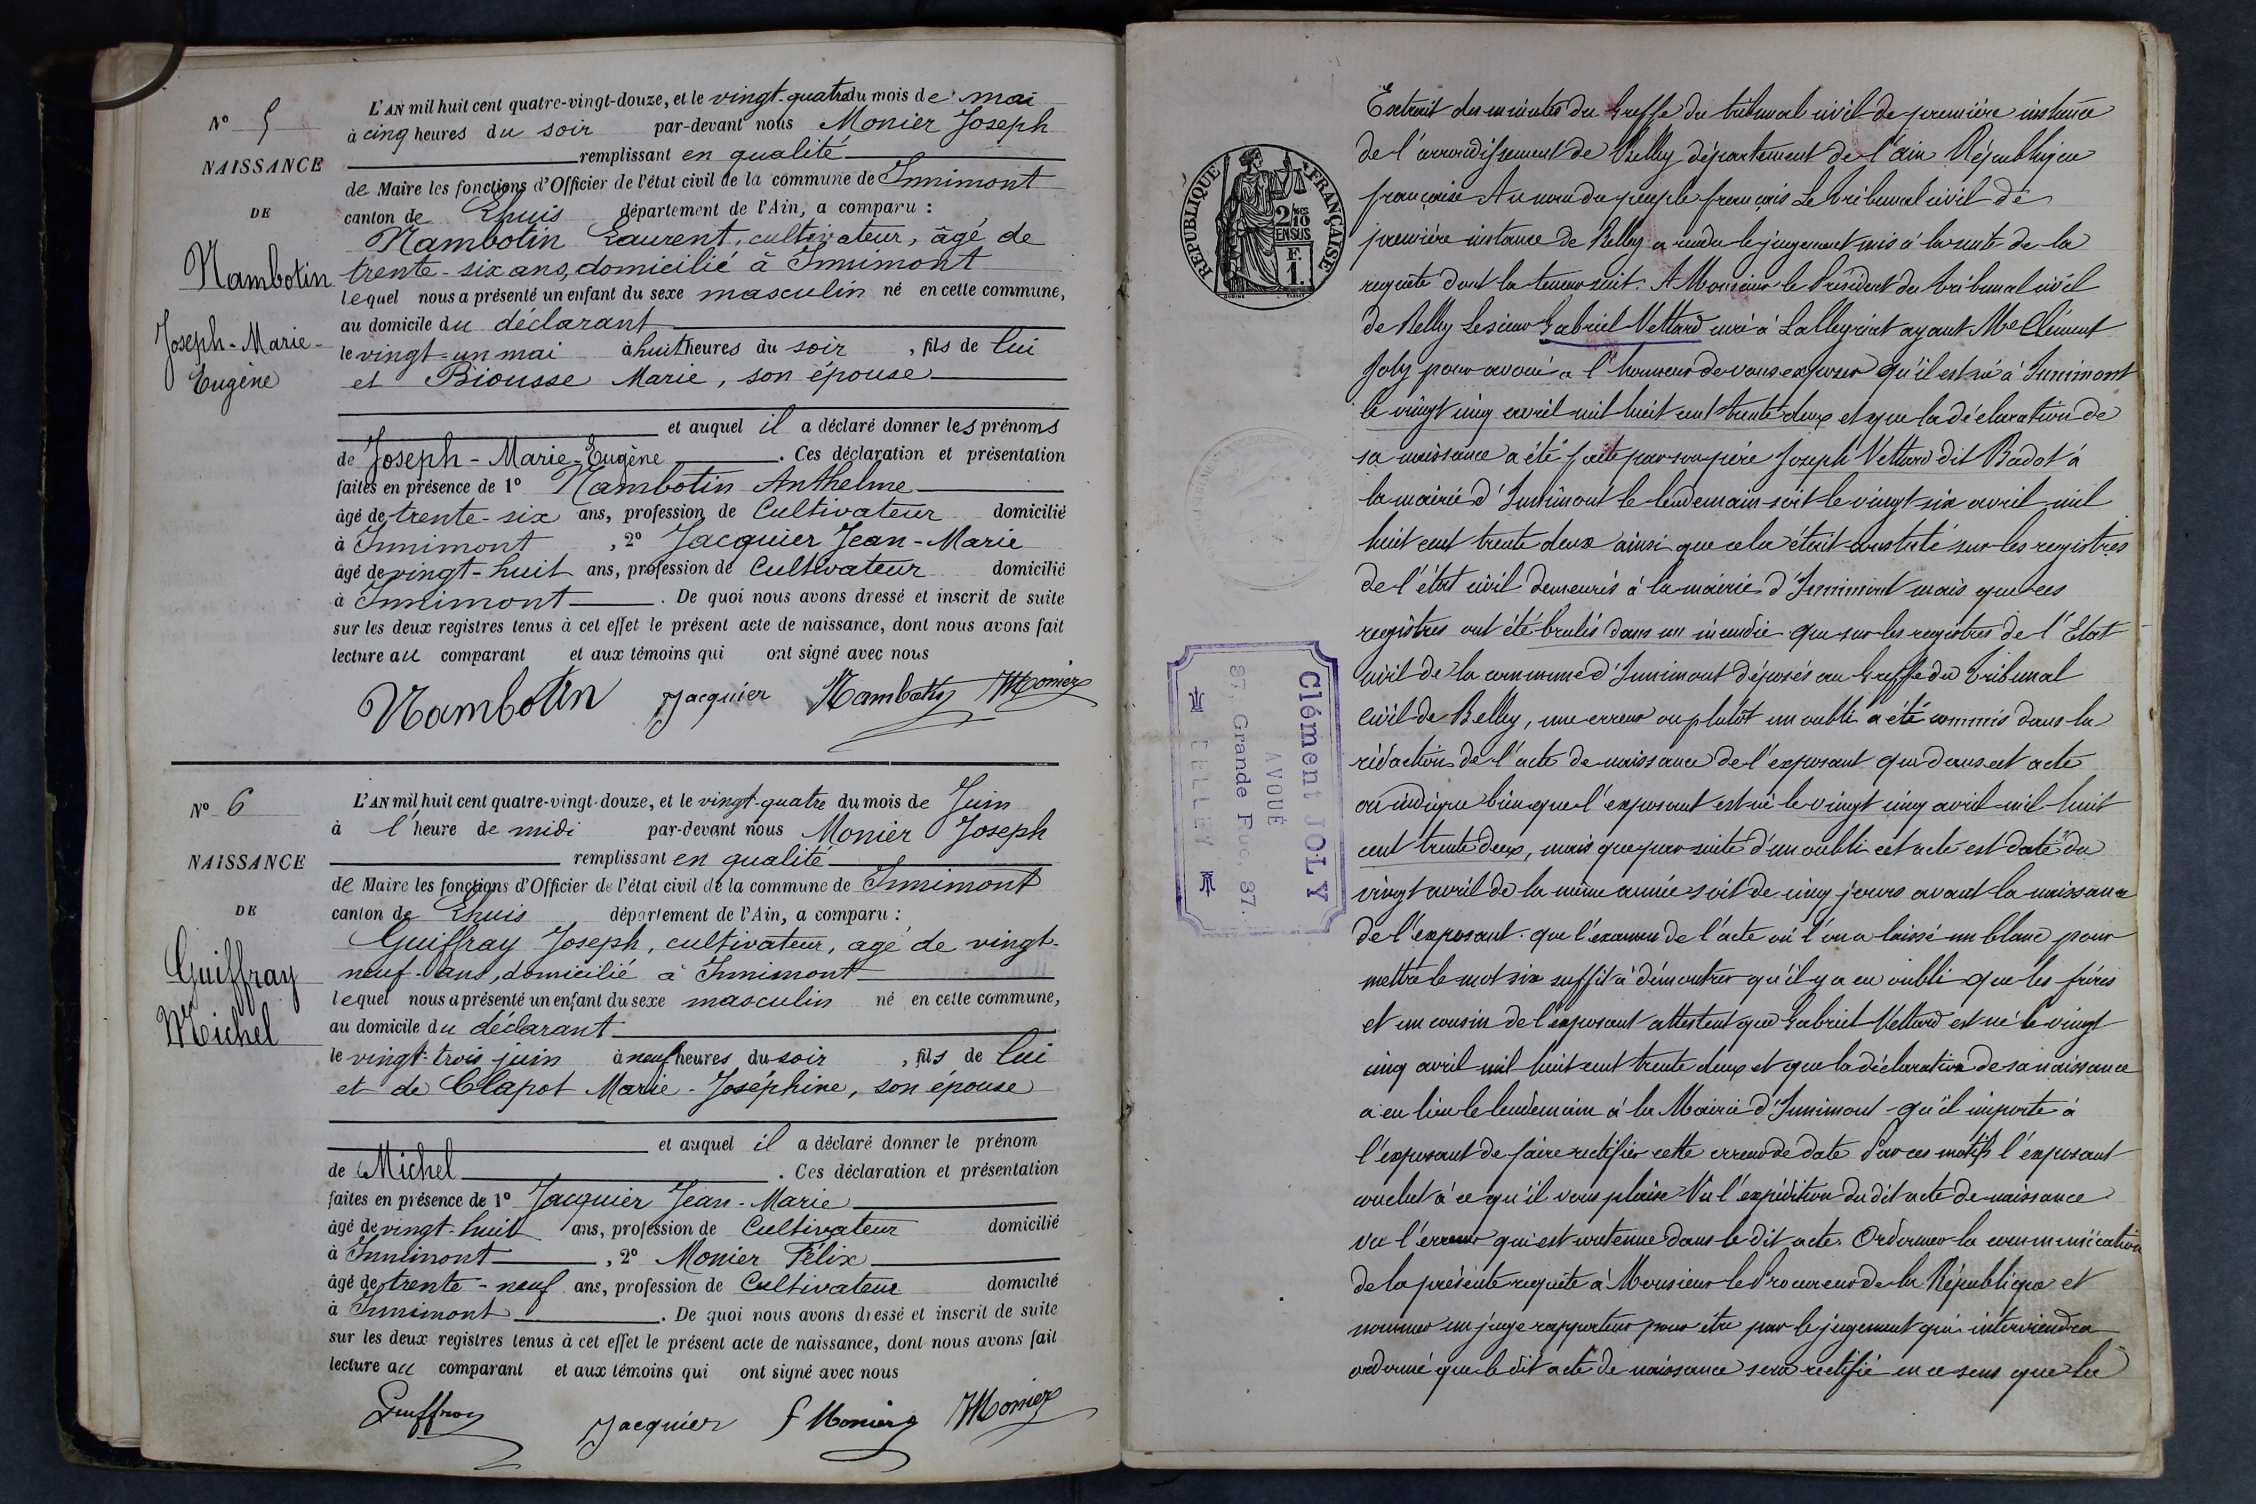 N° 5
NAISSANCE
DE
Nambotin
Joseph-Marie-
Eugène
L'AN mil huit cent quatre-vingt-douze, et le vingt-quatre du mois de mai
à cinq heures du soir par-devant nous Monier Joseph
remplissant en qualité
de Maire les fonctions d'Officier de l'état civil de la commune de Innimont
canton de Lhuis département de l'Ain, a comparu :
Nambotin Laurent, cultivateur, âgé de
trente-six ans, domicilié à Innimont
lequel nous a présenté un enfant du sexe masculin né en cette commune,
au domicile du déclarant
le vingt-un mai à huit heures du soir, fils de lui
et Biousse Marie, son épouse
et auquel il a déclaré donner les prénoms
de Joseph-Marie-Eugène. Ces déclaration et présentation
faites en présence de 1° Nambotin Anthelme
âgé de trente-six ans, profession de Cultivateur domicilié
à Innimont, 2° Jacquier Jean-Marie
âgé de vingt-huit ans, profession de Cultivateur domicilié
à Innimont. De quoi nous avons dressé et inscrit de suite
sur les deux registres tenus à cet effet le présent acte de naissance, dont nous avons fait
lecture au comparant et aux témoins qui ont signé avec nous
Nambotin Jacquier Nambotin Monier
N° 6
NAISSANCE
DE
Guiffray
Michel
L'AN mil huit cent quatre-vingt-douze, et le vingt-quatre du mois de Juin
à l'heure de midi par-devant nous Monier Joseph
remplissant en qualité
de Maire les fonctions d'Officier de l'état civil de la commune de Innimont
canton de Lhuis, département de l'Ain, a comparu :
Guiffray Joseph, cultivateur, agé de vingt-
neuf-ans, domicilié à Innimont
lequel nous a présenté un enfant du sexe masculin né en cette commune,
au domicile du déclarant
le vingt-trois juin à neuf heures du soir, fils de lui
et de Clapot Marie-Joséphine, son épouse
et auquel il a déclaré donner le prénom
de Michel. Ces déclaration et présentation
faites en présence de 1° Jacquier Jean-Marie
âgé de vingt-huit ans, profession de Cultivateur domicilié
à Innimont, 2° Monier Félix
âgé de trente-neuf ans, profession de Cultivateur domicilié
à Innimont. De quoi nous avons dressé et inscrit de suite
sur les deux registres tenus à cet effet le présent acte de naissance, dont nous avons fait
lecture au comparant et aux témoins qui ont signé avec nous
Guiffray Jacquier F Monier Monier
RÉPUBLIQUE FRANÇAISE
2/10
EN SUS
F.
1.
Clément JOLY
AVOUÉ
37. Grande Rue. 37.
BELLEY
Extrait des minutes du Greffe du tribunal civil de première instance
de l'arrondissement de Belley département de l'Ain République
française Au nom du peuple français Le tribunal civil de
première instance de Belley a rendu le jugement mis à la suite de la
requête dont la teneur suit. A Monsieur le Président du tribunal civil
de Belley Le sieur Gabriel Vettard curé à Lalleyriat ayant Me Clément
Joly pour avoué a l'honneur de vous exposer qu'il est né à Innimont
le vingt cinq avril mil huit cent trente deux et que la déclaration de
sa naissance a été faite par son père Joseph Vettard dit Badot à
la mairie d'Innimont le lendemain soit le vingt six avril mil
huit cent trente deux ainsi que cela était constaté sur les registres
de l'état civil demeurés à la mairie d'Innimont mais que ces
registres ont été brulés dans un incendie que sur les registres de l'Etat
civil de la commune d'Innimont déposés au Greffe du Tribunal
civil de Belley, une erreur ou plutôt un oubli a été commis dans la
rédaction de l'acte de naissance de l'exposant que dans cet acte
on indique bien que l'exposant est né le vingt cinq avril mil huit
cent trente deux, mais que par suite d'un oubli cet acte est daté du
vingt avril de la même année soit de cinq jours avant la naissance
de l'exposant. que l'examen de l'acte où l'on a laissé un blanc pour
mettre le mot six suffit à démontrer qu'il y a eu oubli que les frères
et un cousin de l'exposant attestent que Gabriel Vettard est né le vingt
cinq avril mil huit cent trente deux et que la déclaration de sa naissance
a eu lieu le lendemain à la Mairie d'Innimont qu'il importe à
l'exposant de faire rectifier cette erreur de date Par ces motifs l'exposant
conclut à ce qu'il vous plaise Vu l'expédition du dit acte de naissance
vu l'erreur qui est contenue dans le dit acte. Ordonner la communication
de la présente requête à Monsieur le Procureur de la République et
nommer un juge rapporteur pour être par le jugement qui interviendra
ordonné que le dit acte de naissance sera rectifié en ce sens que la